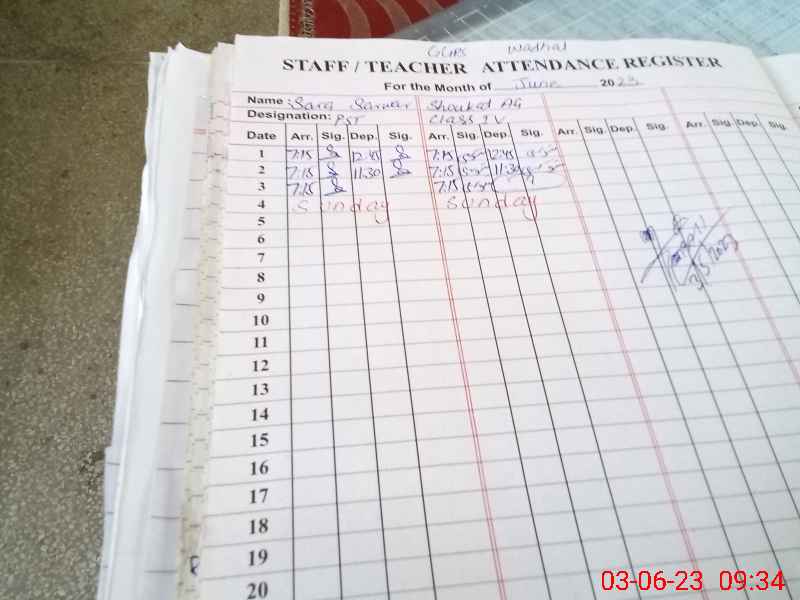 GGPS Wadhal
STAFF / TEACHER ATTENDANCE REGISTER
For the Month of June 2023
Name : Sara Sarwar Shoukat Ali
Designation: PST Class IV
Date Arr. Sig. Dep. Sig. Arr. Sig. Dep. Sig. Arr. Sig. Dep. Sig. Arr. Sig. Dep. Sig.
1 7:15 12:45 7:15 12:45
2 7:15 11:30 7:15 11:30
3 7:15 7:15
4 Sunday Sunday
5
6
7
8
9
10
11
12
13
14
15
16
17
18
19
20
03-06-23 09:34